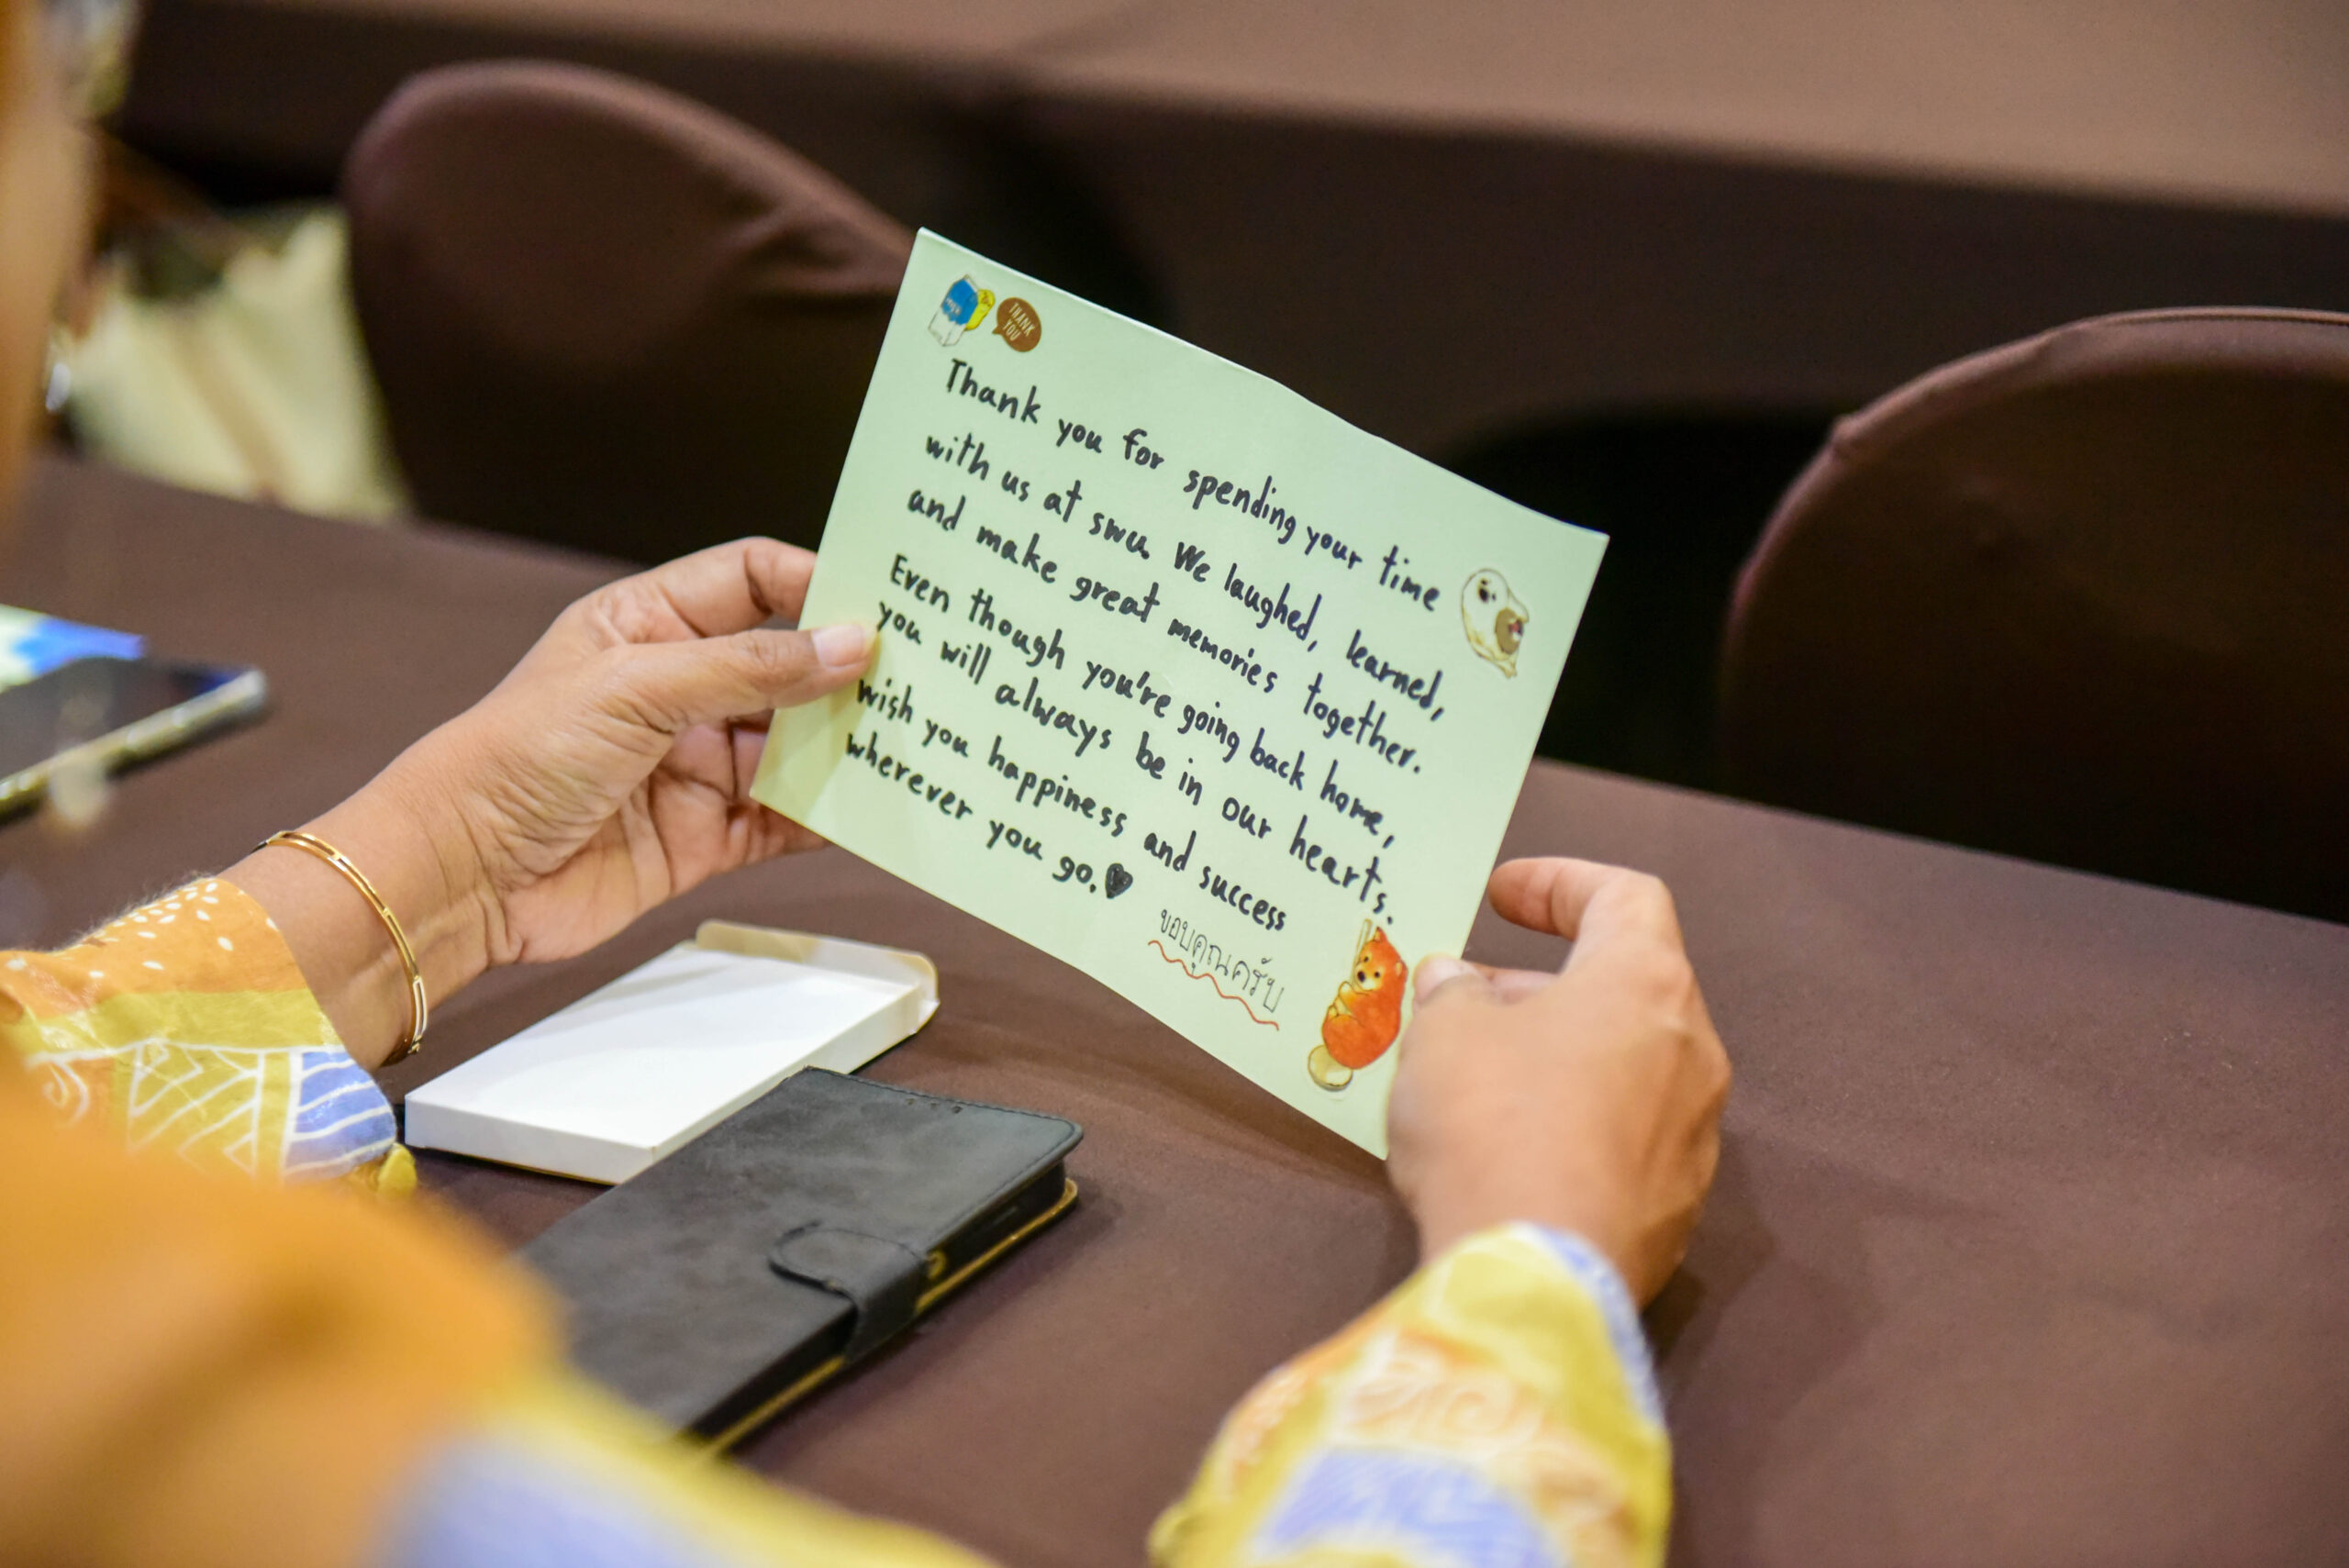 THANK
YOU
Thank you for spending your time
with us at swu. We laughed, learned,
and make great memories together.
Even though you're going back home,
you will always be in our hearts.
wish you happiness and success
wherever you go.
ขอบคุณครับ